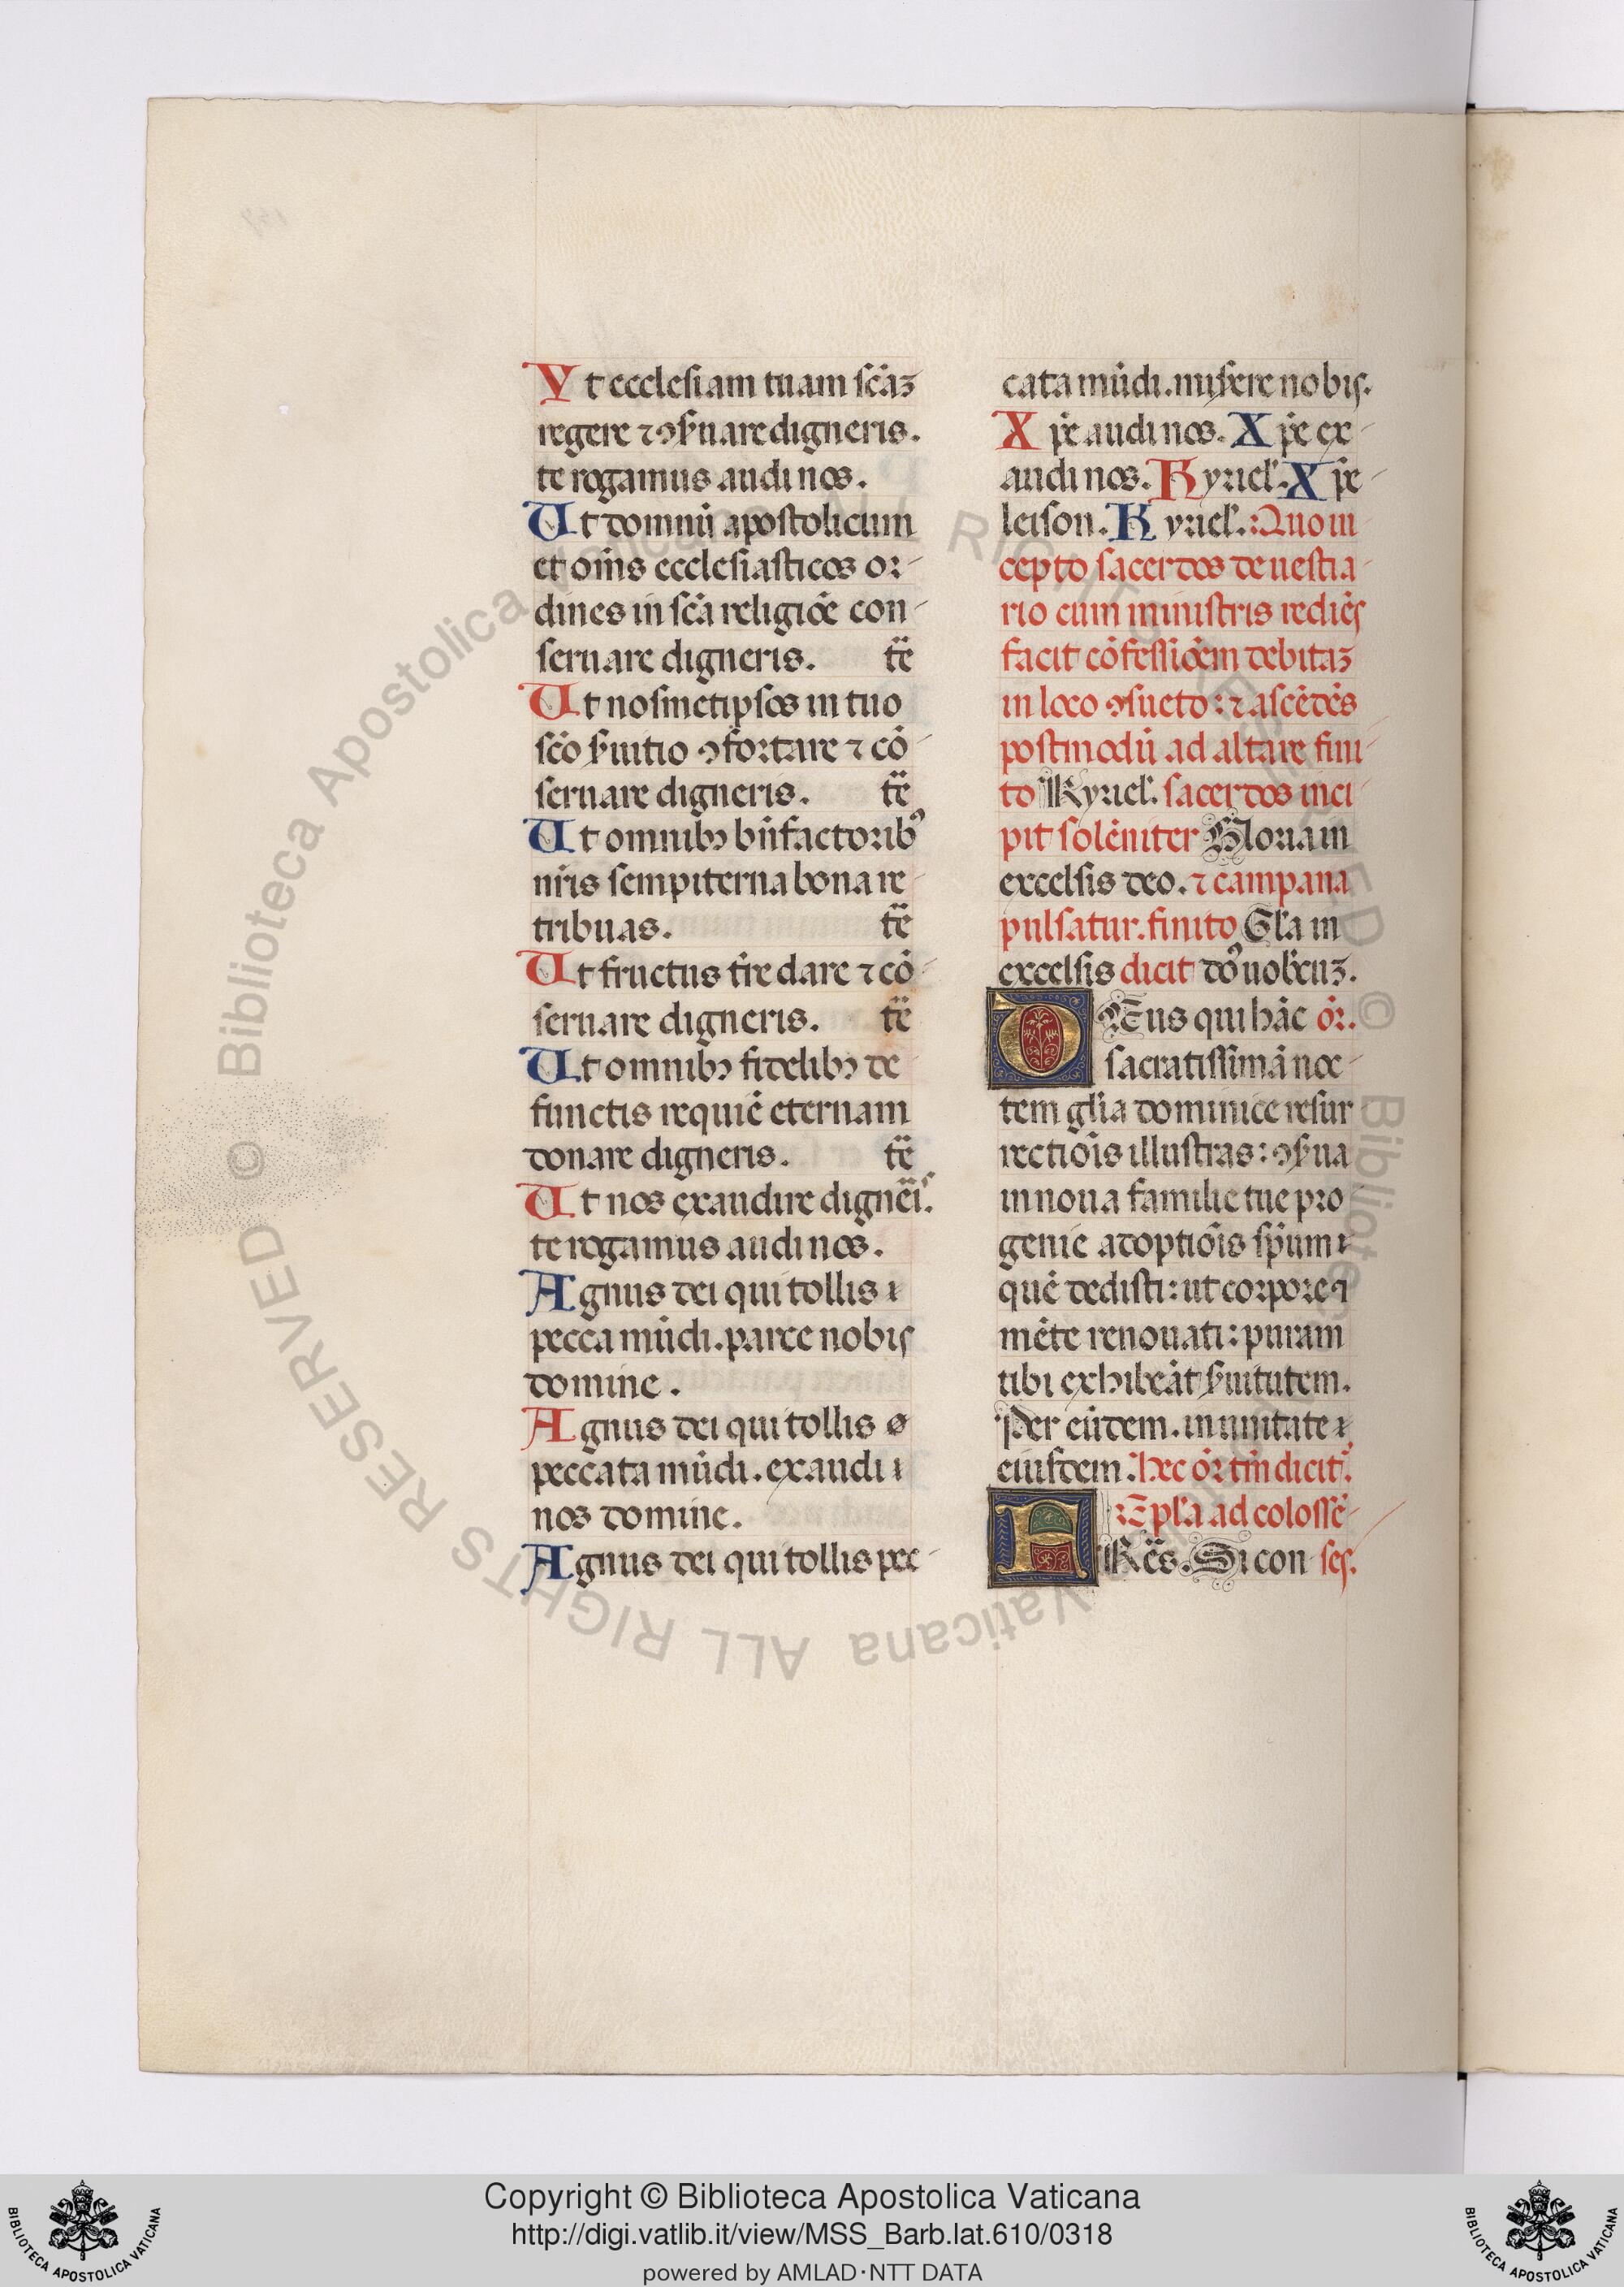 Vt ecclesiam tuam sc̄aꝫ
regere ⁊ ꝯẜuare digneris.
te rogamus audi nos.
Ut domnū apostolicum
et om̄s ecclesiasticos or-
dines in sc̄a religiōe con-
seruare digneris. te
Ut nosmetipsos in tuo
sc̄o ẜuitio ꝯfortare ⁊ cō-
seruare digneris. te
Ut omnibꝫ bn̄factoribꝰ
nr̄is sempiterna bona re-
tribuas. te
Ut fructus tr̄e dare ⁊ cō-
seruare digneris. te
Ut omnibꝫ fidelibꝫ de-
functis requiē eternam
donare digneris. te
Ut nos exaudire digneis.
te rogamus audi nos.
Agnus dei qui tollis
pecca mūdi. parce nobis
domine.
Agnus dei qui tollis
peccata mūdi. exaudi
nos domine.
Agnus dei qui tollis pec-
cata mūdi. misere nobis.
Xp̄e audi nos. Xp̄e ex-
audi nos. Kyriel̄. Xp̄e-
leison. Kyriel̄. Quo in
cepto sacerdos de uestia-
rio cum ministris rediēs
facit cōfessiōem debitaꝫ
in loco ꝯsueto: ⁊ ascēdēs
postmodū ad altare fini-
to Kyriel̄. sacerdos inci-
pit solēniter Gloria in
excelsis deo. ⁊ campana
pulsatur. finito Gl̄a in
excelsis dicit dōꝰ uob̄cuꝫ.
DEus qui hāc or̄.
sacratissimā noc-
tem gl̄ia dominice resur
rectiōis illustras: ꝯẜua
in noua familie tue pro
genie adoptiōis sp̄um
quē dedisti: ut corpore ⁊
mēte renouati: puram
tibi exhibeāt ẜuitutem.
Per eūdem. in unitate
eiusdem. hec or̄ tm̄ dicit̄.
Ep̄la ad colossē-
FRēs. Si con ses.
Copyright © Biblioteca Apostolica Vaticana
http://digi.vatlib.it/view/MSS_Barb.lat.610/0318
powered by AMLAD·NTT DATA
BIBLIOTECA APOSTOLICA VATICANA
BIBLIOTECA APOSTOLICA VATICANA